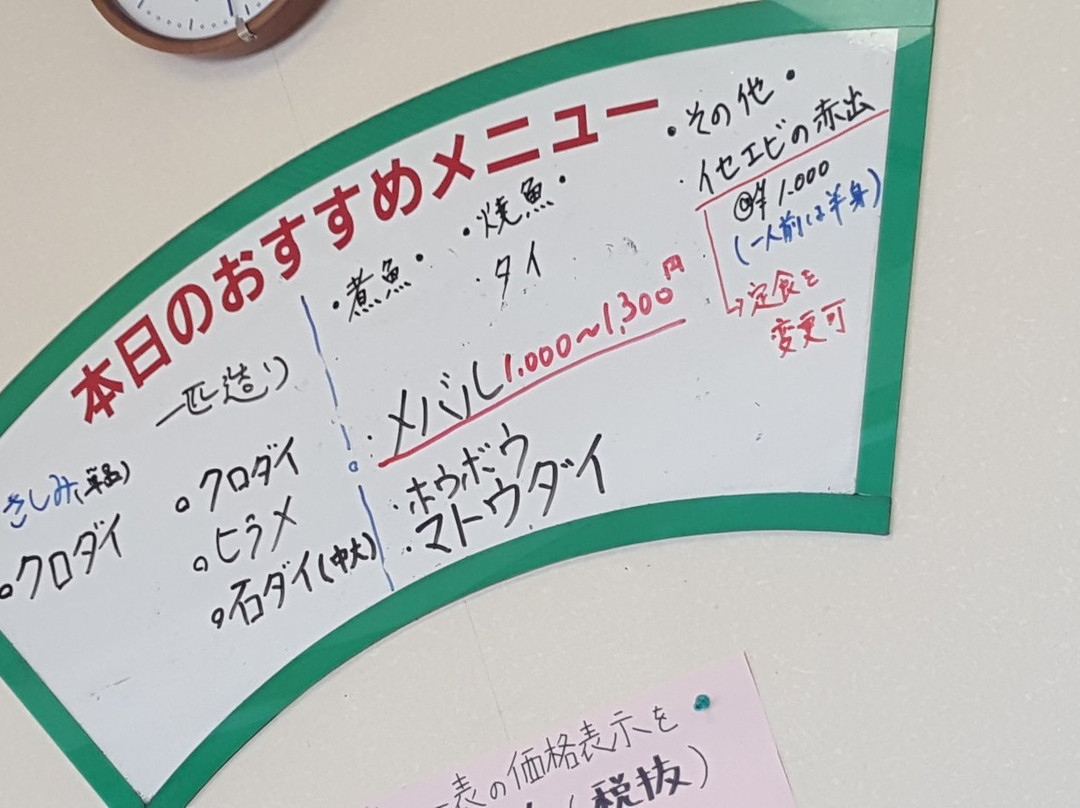 本日のおすすめメニュー
さしみ(単品)
○クロダイ
一匹造り
○クロダイ
○ヒラメ
○石ダイ(中大)
・煮魚・
・メバル 1.000〜1,300円
・ホウボウ
・マトウダイ
・焼魚・
・タイ
・その他・
・イセエビの赤出
@¥1.000
(一人前は半身)
↳定食を
変更可
表の価格表示を
(税抜)